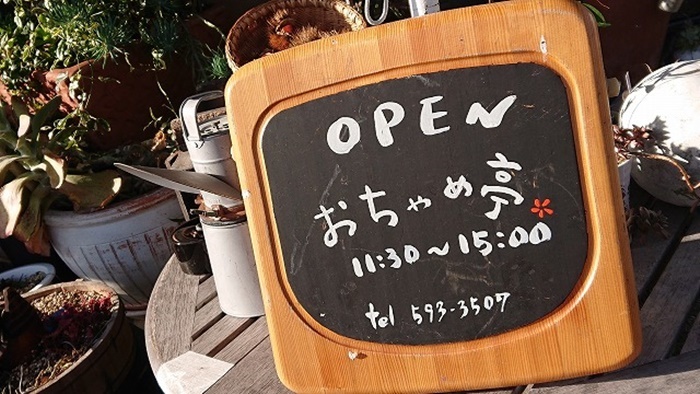 OPEN
おちゃめ亭
11:30~15:00
tel 593-3507